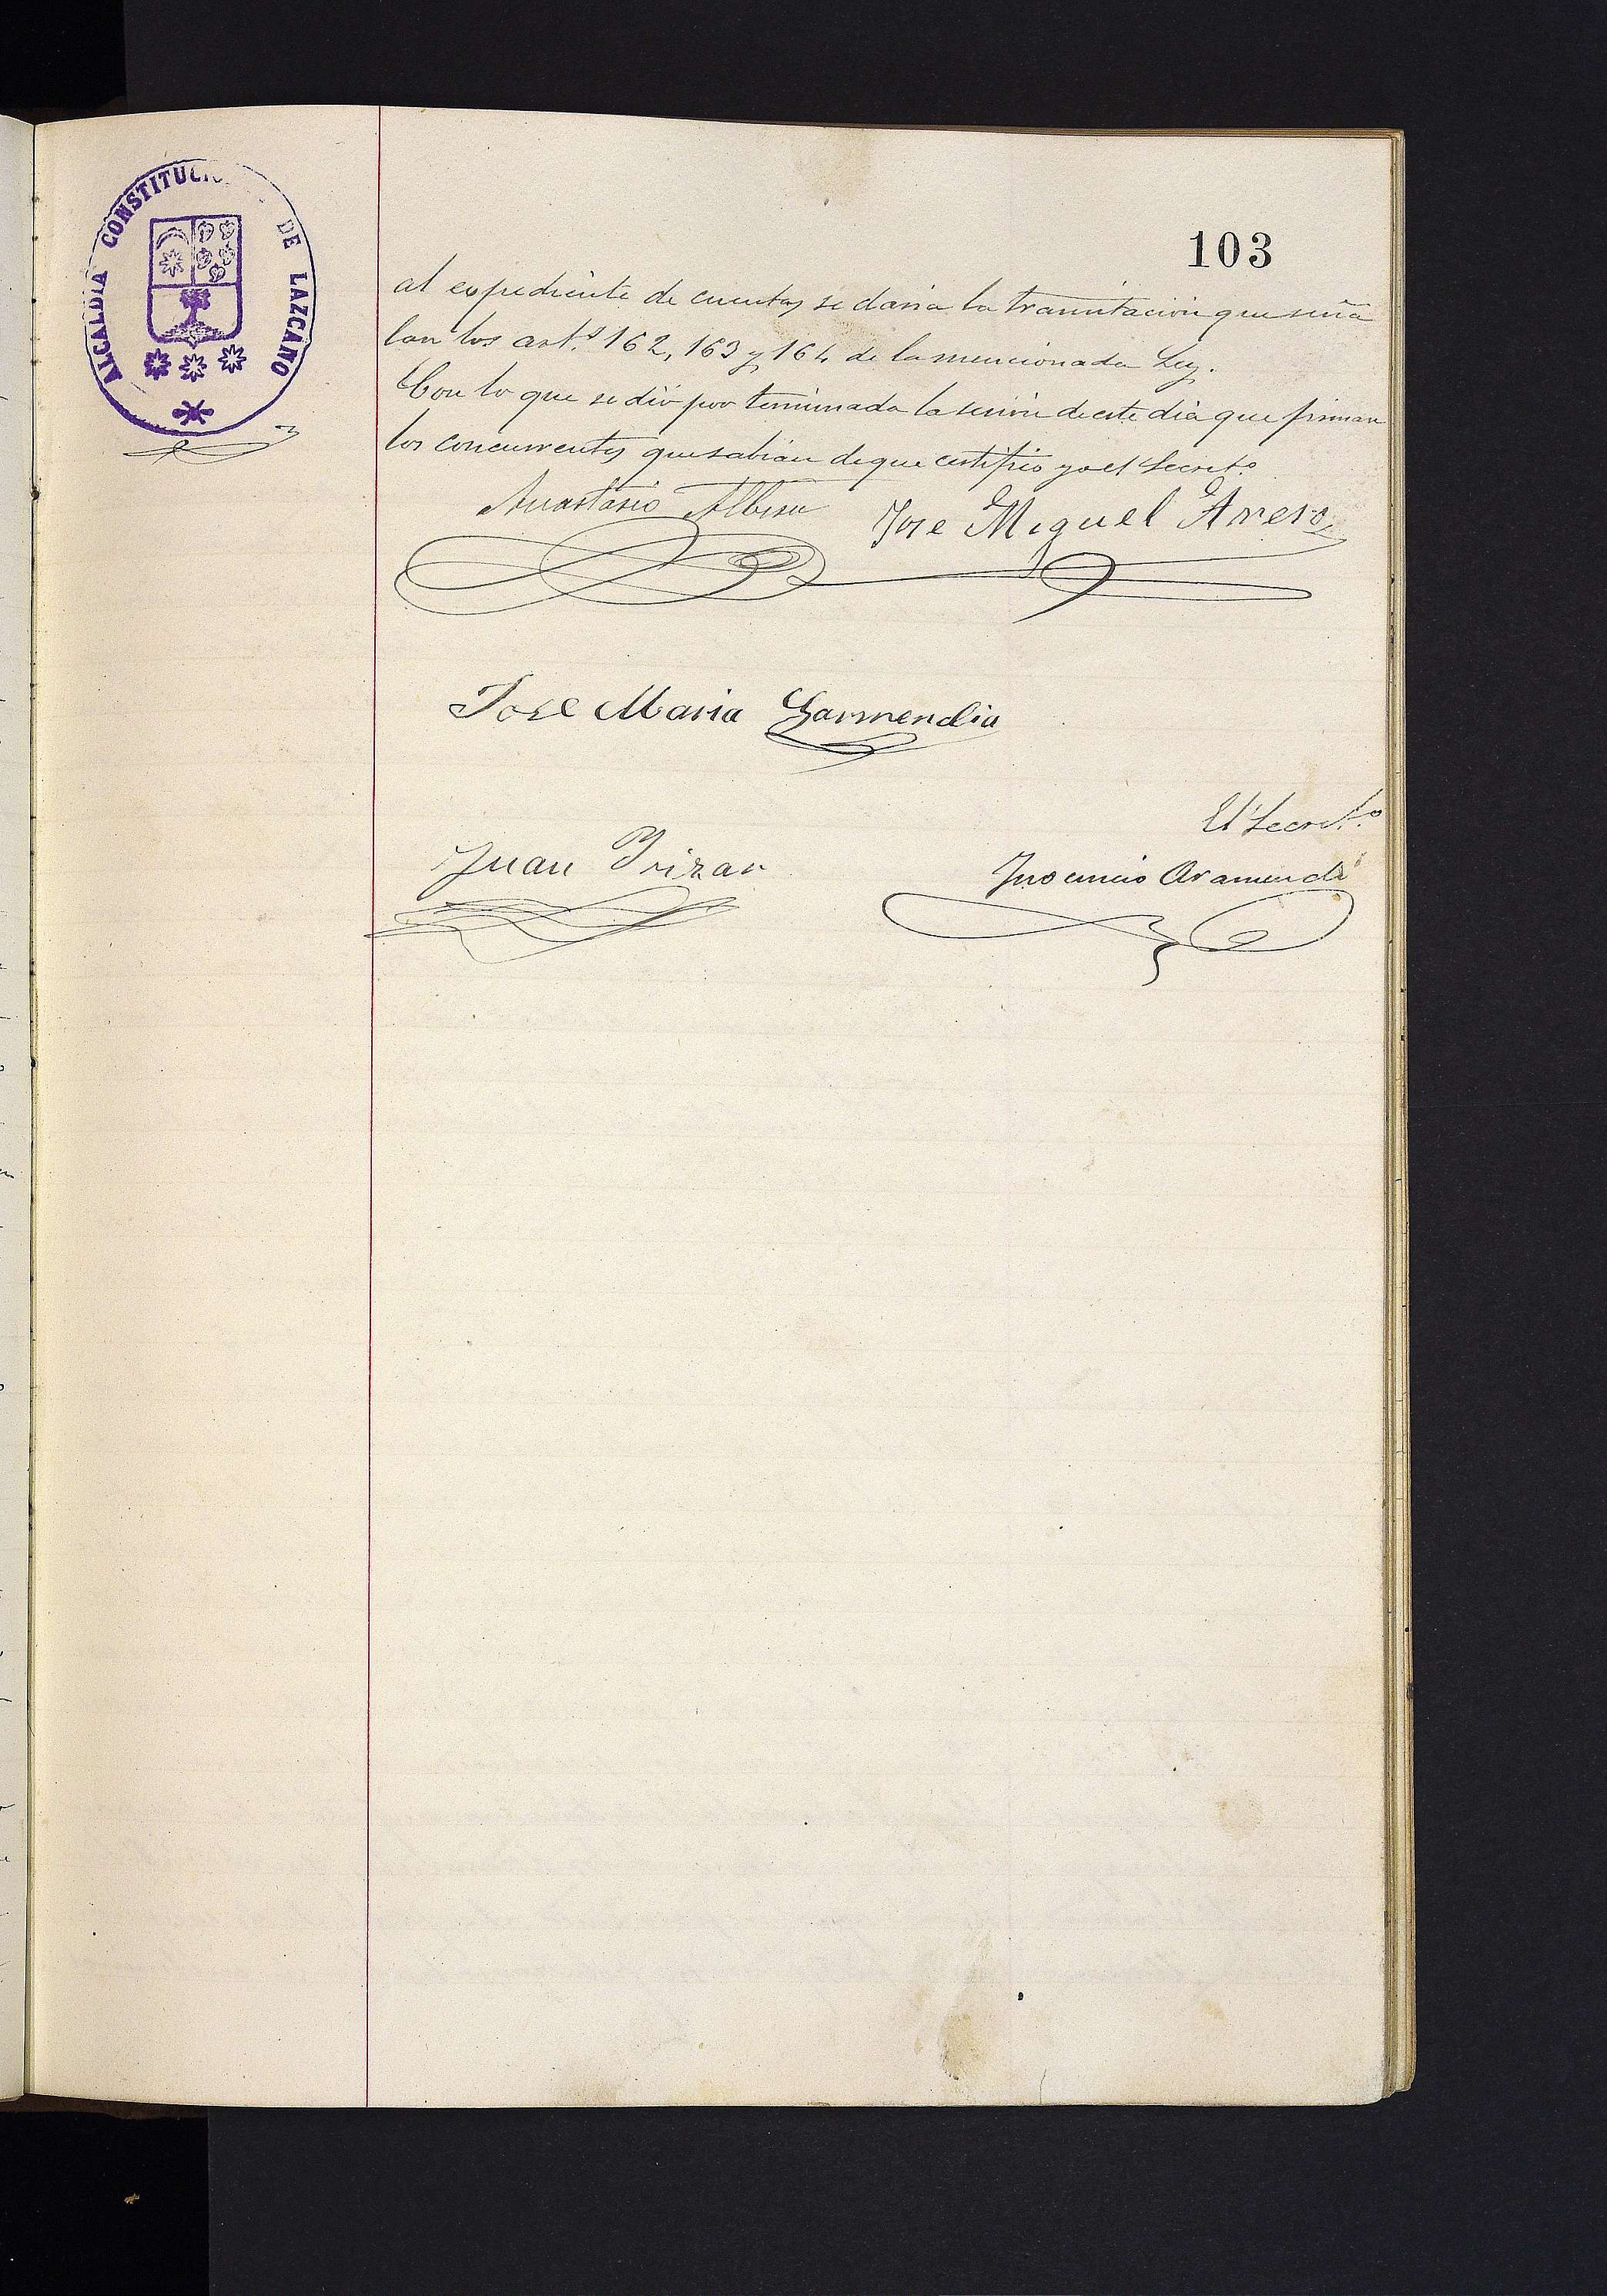 ALCALDIA CONSTITUCIO DE LAZCANO
103
al espediente de cuentas se daria la tramitacion que seña
lan los art.s 162, 163 y 164 de la mencionada Ley.
Con lo que se dió por terminada la sesión de este dia que firman
los concurrentes que sabian de que certifico yo el Secret.o
Anastasio Albisu
Jose Miguel
Jose Maria Garmendia
El Secret.o
Juan Irizar
Inocencio Aramendi